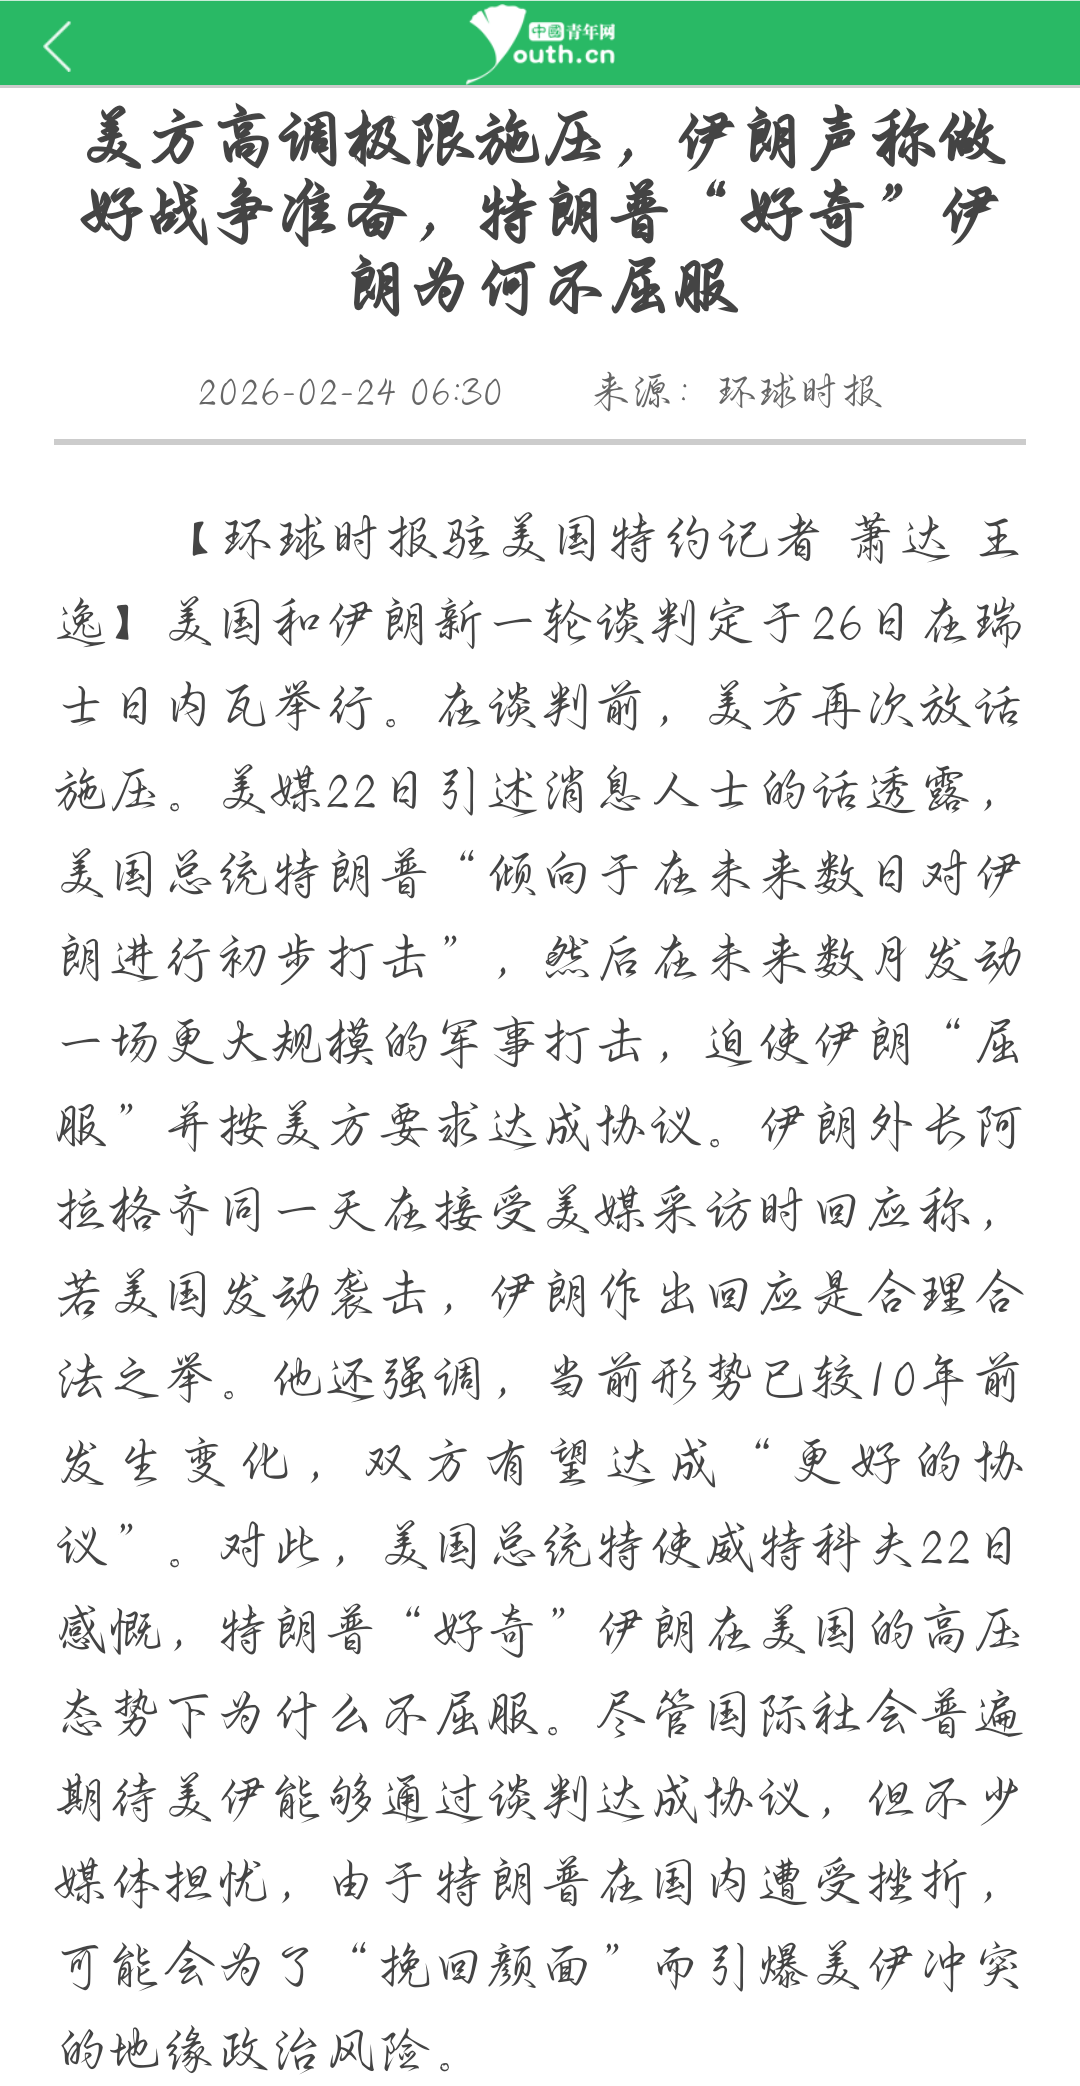 中國青年网
Youth.cn
美方高调极限施压，伊朗声称做
好战争准备，特朗普“好奇”伊
朗为何不屈服
2026-02-24 06:30 来源：环球时报
【环球时报驻美国特约记者 萧达 王
逸】美国和伊朗新一轮谈判定于26日在瑞
士日内瓦举行。在谈判前，美方再次放话
施压。美媒22日引述消息人士的话透露，
美国总统特朗普“倾向于在未来数日对伊
朗进行初步打击”，然后在未来数月发动
一场更大规模的军事打击，迫使伊朗“屈
服”并按美方要求达成协议。伊朗外长阿
拉格齐同一天在接受美媒采访时回应称，
若美国发动袭击，伊朗作出回应是合理合
法之举。他还强调，当前形势已较10年前
发生变化，双方有望达成“更好的协
议”。对此，美国总统特使威特科夫22日
感慨，特朗普“好奇”伊朗在美国的高压
态势下为什么不屈服。尽管国际社会普遍
期待美伊能够通过谈判达成协议，但不少
媒体担忧，由于特朗普在国内遭受挫折，
可能会为了“挽回颜面”而引爆美伊冲突
的地缘政治风险。